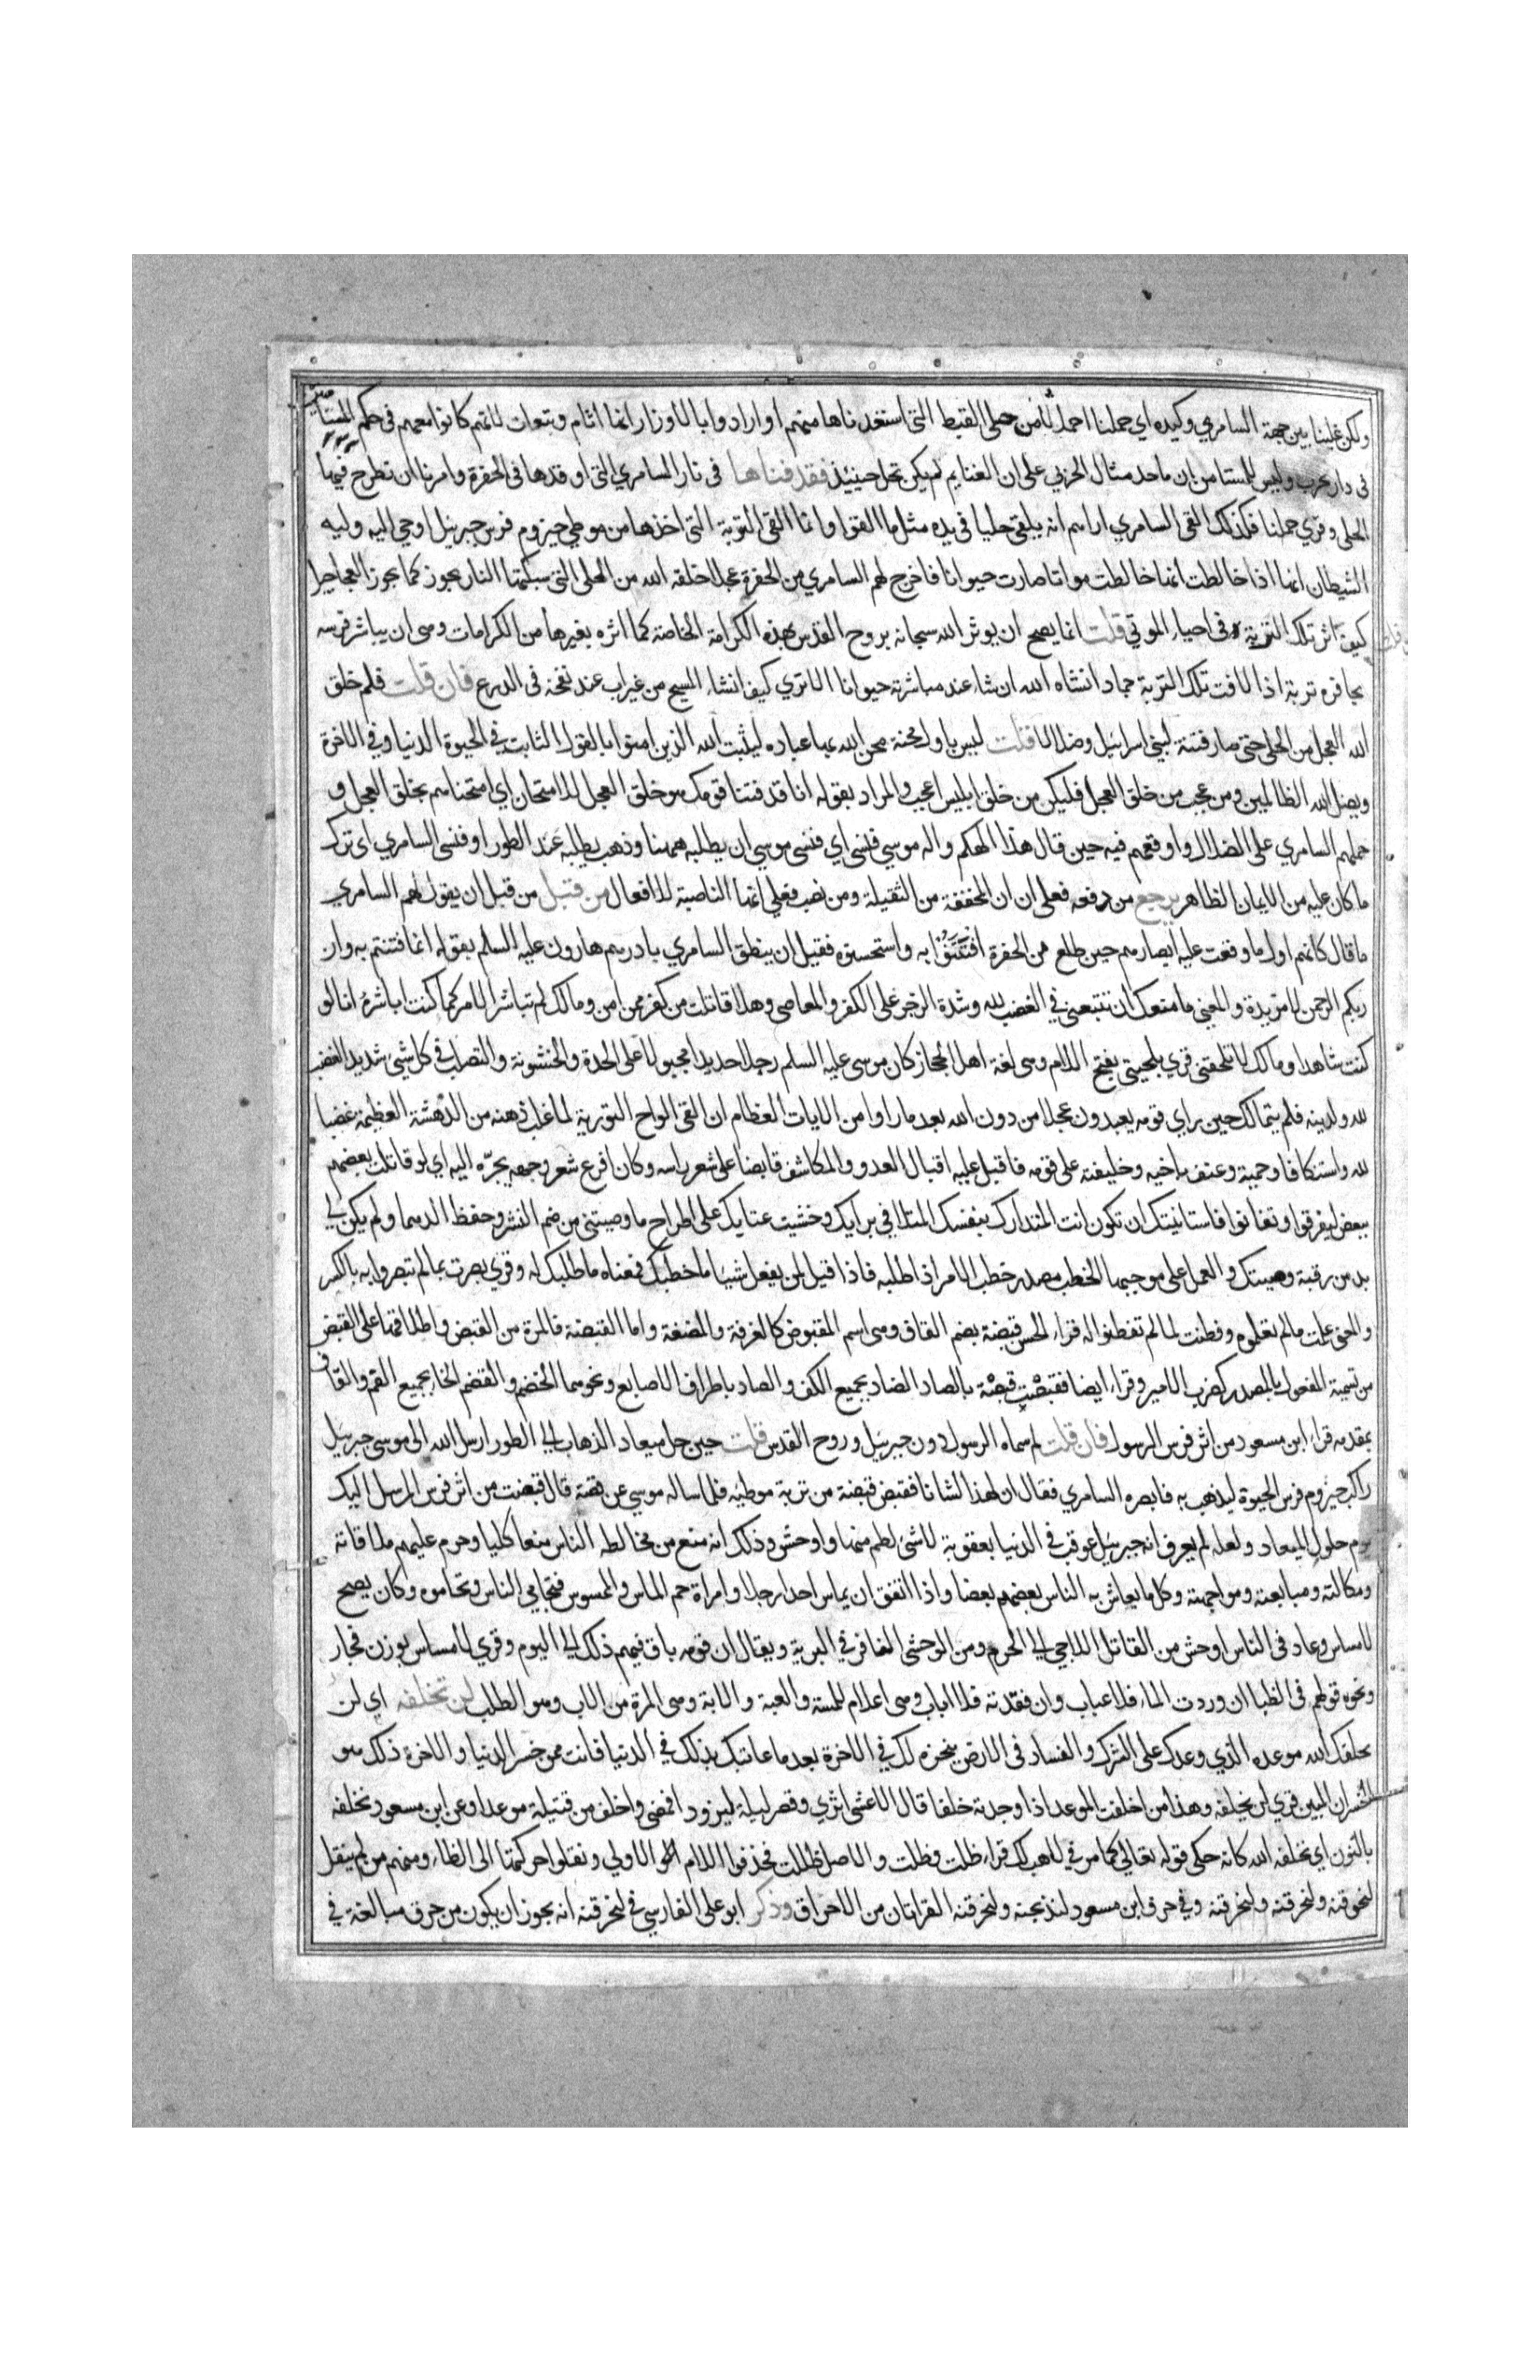 ولكن غلبنا من جهة السامري وكيده اي حملنا احمالا من حلي القبط التي استعرناها منهم او ارادوا بالاوزار انها اثام وتبعات لانهم كانوا معهم في حكم المستامنين
في دار الحرب وليس للمستامن ان ياخذ مال الحربي على ان الغنايم لم يكن تحل حينئذ فقذفناها في نار السامري التي اوقدها في الحفرة وامرنا ان نطرح فيها
الحلي وقري حملنا فكذلك القى السامري اراهم انه يلقي حليا في يده مثل ما القوا وانما القى التربة التي اخذها من موطي حيزوم فرس جبريل اوحى اليه وليه
الشيطان انها اذا خالطت مواتا صارت حيوانا فاخرج لهم السامري من الحفرة عجلا خلقه الله من الحلي التي سبكتها النار يجوز كما يجوز العجاجيل
كيف اثرت تلك التربة في احياء الموتي قلت انما يصح ان يوثر الله سبحانه بروح القدس بهذه الكرامة الخاصة كما اثره بغيرها من الكرامات وهي ان يباشر فرسه
بحافره تربة اذا لاقت تلك التربة جمادا انشاه الله ان شاء عند مباشرته حيوانا الا تري كيف انشاء المسيح من غير اب عند نفخه في الدرع فان قلت فلم خلق
الله العجل من الحلي حتى صار فتنة لبني اسرائيل وضلالا قلت ليس باول محنة محن الله بها عباده ليثبت الله الذين امنوا بالقول الثابت في الحيوة الدنيا وفي الاخرة
ويضل الله الظالمين ومن عجب من خلق العجل فليكن من خلق ابليس اعجب والمراد بقوله انا قد فتنا قومك هو خلق العجل للامتحان اي امتحناهم بخلق العجل و
حملهم السامري على الضلال واوقعهم فيه حين قال هذا الهكم واله موسي فنسي اي فنسى موسي ان يطلبه ههنا وذهب يطلبه عند الطور او فنسى السامري اى ترك
ما كان عليه من الايمان الظاهر يرجع من رفعه فعلى ان ان المخففة من الثقيلة ومن نصب فعلي انها الناصبة للافعال من قبل من قبل ان يقول لهم السامري
ما قال كانهم اول ما وقعت عليه ابصارهم حين طلع من الحفرة افتتنوا به واستحسنوه فقبل ان ينطق السامري بادرهم هارون عليه السلم بقوله انما فتنتم به وان
ربكم الرحمن لا مزيدة والمعنى ما منعك ان تتبعني في الغضب لله وشدة الزجر على الكفر والمعاصي وهلا قاتلت من كفر بمن امن ومالك لم تباشر الامر كما كنت اباشره انا لو
كنت شاهدا ومالك لا تلحقني قري بلحيتي بفتح اللام وهي لغة اهل الحجاز كان موسى عليه السلم رجلا حديدا مجبولا على الحدة والخشونة والتصلب في كل شيئ شديد الغضب
لله ولدينه فلم يتمالك حين راي قومه يعبدون عجلا من دون الله بعد ما راوا من الايات العظام ان القى الواح التورية لما غلب ذهنه من الدهشة العظيمة غضبا
لله واستنكافا وحمية وعنف باخيه وخليفته على قومه فاقبل عليه اقبال العدو والمكاشف قابضا على شعر راسه وكان افرع شعر وجهه يجره اليه اي لو قاتلت بعضهم
ببعض ليفرقوا وتفانوا فاستانيتك ان تكون انت المتدارك بنفسك المتلافي برايك وخشيت عتابك على اطراح ما وصيتني من ضم النشر وحفظ الدهما ولم يكن لي
بد من رقبة وصيتك والعمل على موجبها الخطب مصدر خطب الامر اذا طلبه فاذا قيل لمن يفعل شيئا ما خطبك فمعناه ما طلبك له وقري بصرت بما لم تبصروا به بالكسر
والمعنى علمت مالم تعلموه وفطنت لما لم تفطنوا له قراء الحسن قبضة بضم القاف وهي اسم المقبوض كالغرفة والمضغة واما القبضة فالمرة من القبض واطلاقها على القبض
من تسمية المفعول بالمصدر كضرب الامير وقراء ايضا فقبصت قبصة بالصاد الضاد بجميع الكف والصاد باطراف الاصابع ونحوهما الخضم والقضم الخا بجميع الفم والقاف
بمقدمه قراء ابن مسعود من اثر فرس الرسول فان قلت لم سماه الرسول دون جبريل وروح القدس قلت حين حل ميعاد الذهاب الى الطور ارسل الله الى موسى جبريل
راكب حيزوم فرس الحيوة ليذهب به فابصره السامري فقال ان لهذا لشانا فقبض قبضة من تربة موطيه فلما ساله موسي عن قصته قال قبضت من اثر فرس المرسل اليك
يوم حلول الميعاد ولعله لم يعرف انه جبريل عوقب في الدنيا بعقوبة لا شئ اطم منها واوحش وذلك انه منع من مخالطة الناس منعا كليا وحرم عليهم ملاقاته
ومكالمته ومبايعته ومواجهته وكل ما يعايش به الناس بعضهم بعضا واذا اتفق ان يماس احدا رجلا او امراة حم الماس والممسوس فتحامي الناس وتحاموه وكان يصيح
لا مساس وعاد في الناس اوحش من القاتل اللاجي الى الحرم ومن الوحشى النافر في البرية ويقال ان قومه باق فيهم ذلك الى اليوم وقري لا مساس بوزن فجار
ونحوه قولهم في الظبا ان وردت الماء فلا عباب وان فقدته فلا اباب وهي اعلام للمسة والعبة والابة وهي المرة من الاب وهو الطلب لن تخلفه اي لن
يخلفك الله موعده الذي وعدك على الشرك والفساد في الارض ينجزه لك في الاخرة بعد ما عاقبك بذلك في الدنيا فانت ممن خسر الدنيا والاخرة ذلك هو
الخسران المبين قري لن يخلفه وهذا من اخلفت الموعد اذا وجدته خلفا قال الاعشى اثوي وقصر ليلة ليزودا فمضى واخلف من قتيلة موعدا وعن ابن مسعود نخلفه
بالنون اي نخلفه الله كانه حكى قوله تعالى كما مر في لاهب لك قراء ظلت وظلت والاصل ظللت فحذفوا اللام الاولي ونقلوا حركتها الى الظاء ومنهم من لم ينقل
لنحرقنه ولنحرقنه ولنحرقنه وفي حرف ابن مسعود لنذبحنه ولنحرقنه القراتان من الاحراق وذكر ابو على الفارسي في لنحرقنه انه يجوز ان يكون من حرق مبالغة في